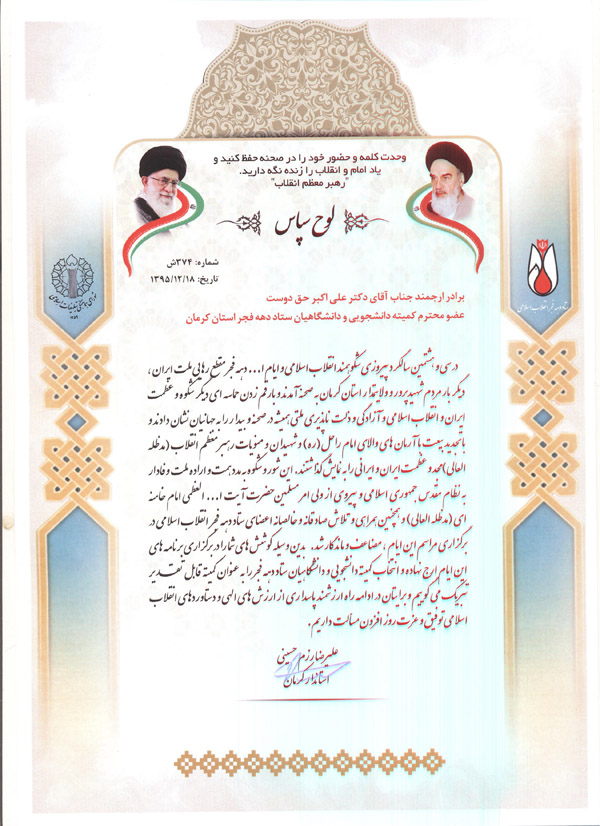 وحدت کلمه و حضور خود را در صحنه حفظ کنید و
یاد امام و انقلاب را زنده نگه دارید.
"رهبر معظم انقلاب"
لوح سپاس
شماره: ۳۷۴ش
تاریخ: ۱۳۹۵/۱۲/۱۸
شورای هماهنگی تبلیغات اسلامی
ستاد دهه فجر انقلاب اسلامی
برادر ارجمند جناب آقای دکتر علی اکبر حق دوست
عضو محترم کمیته دانشجویی و دانشگاهیان ستاد دهه فجر استان کرمان
در سی و هشتمین سالگرد پیروزی شکوهمند انقلاب اسلامی و ایام ا... دهه فجر مقطع رهایی ملت ایران،
دیگر بار مردم شهیدپرور و ولایتمدار استان کرمان به صحنه آمدند و با رقم زدن حماسه ای دیگر شکوه و عظمت
ایران و انقلاب اسلامی و آزادگی و ذلت ناپذیری ملتی همیشه در صحنه و بیدار را به جهانیان نشان دادند و
با تجدید بیعت با آرمان های والای امام راحل (ره) و شهیدان و منویات رهبر معظم انقلاب (مدظله
العالی) مجد و عظمت ایران و ایرانی را به نمایش گذاشتند. این شور و شکوه به مدد همت و اراده ملت وفادار
به نظام مقدس جمهوری اسلامی و پیروی از ولی امر مسلمین حضرت آیت ا... العظمی امام خامنه
ای (مدظله العالی) و همچنین همراهی و تلاش صادقانه و خالصانه اعضای ستاد دهه فجر انقلاب اسلامی در
برگزاری مراسم این ایام، مضاعف و ماندگار شد. بدین وسیله کوشش های شما را در برگزاری برنامه های
این ایام ارج نهاده و انتخاب کمیته دانشجویی و دانشگاهیان ستاد دهه فجر را به عنوان کمیته قابل تقدیر
تبریک می گوییم و برایتان در ادامه راه ارزشمند پاسداری از ارزش های الهی و دستاوردهای انقلاب
اسلامی توفیق و عزت روز افزون مسألت داریم.
علیرضا رزم حسینی
استاندار کرمان